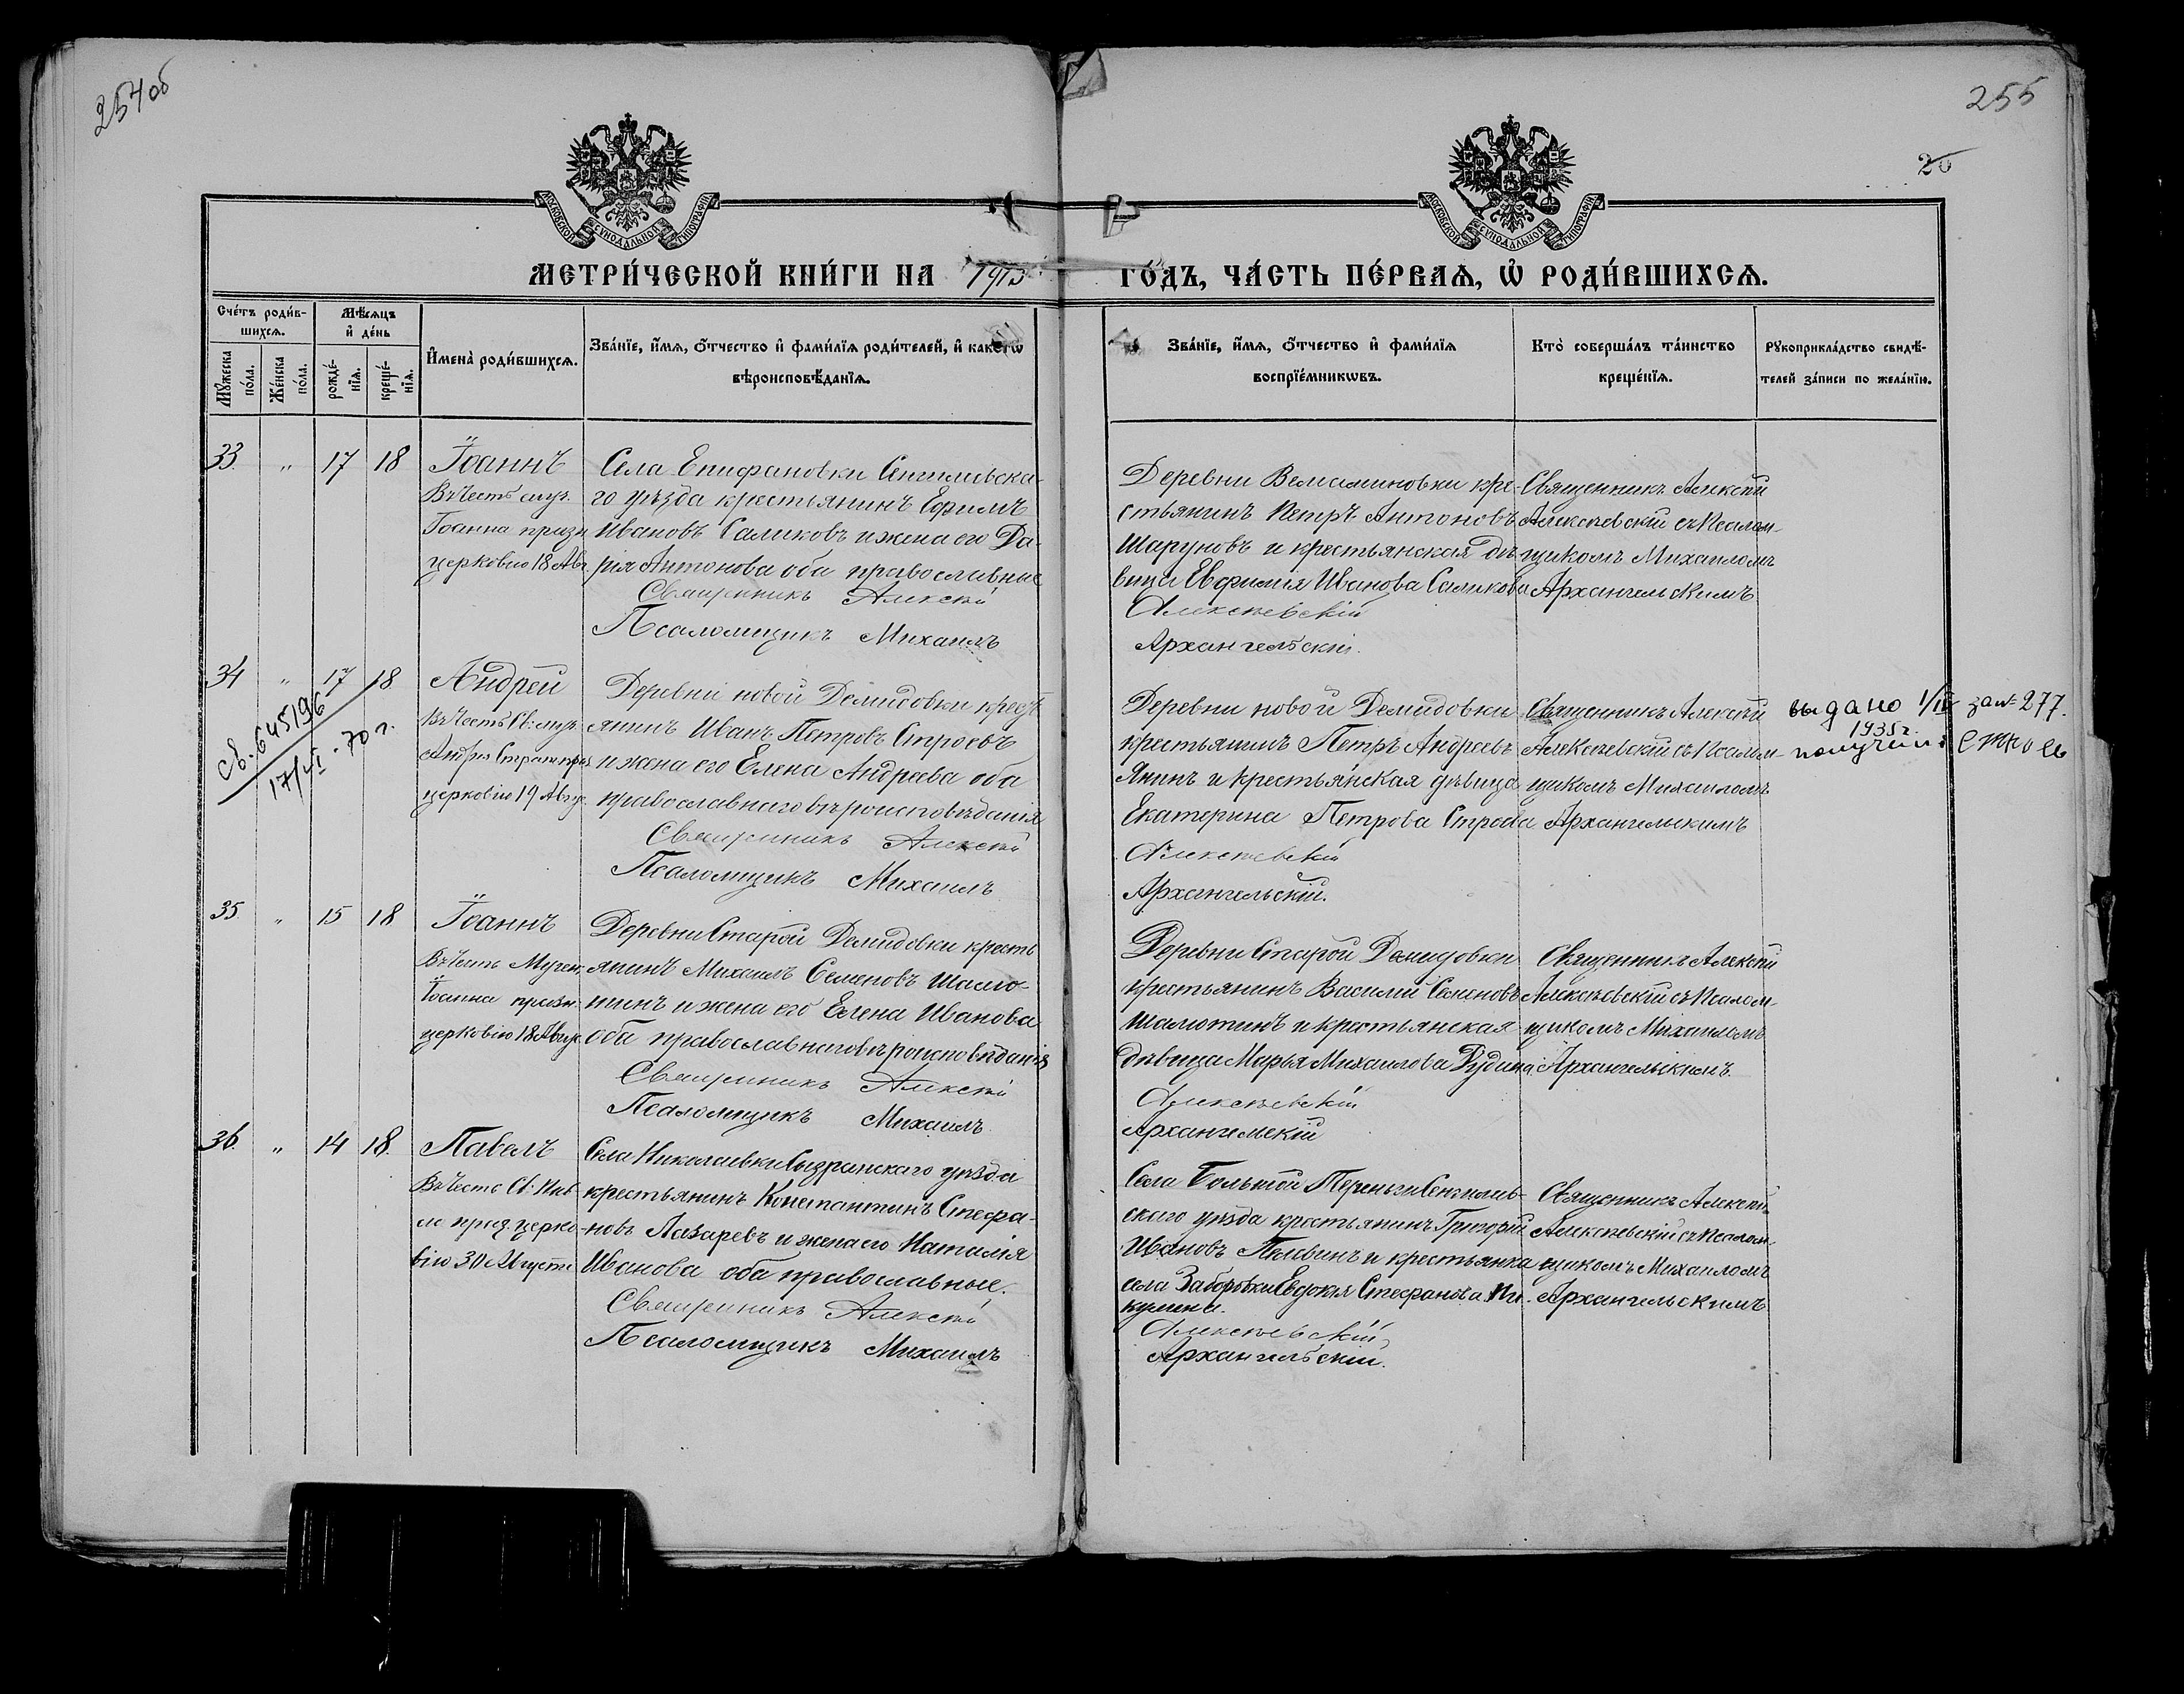 254 об
255
20
МОСКОВСКОЙ СѴНОДАЛЬНОЙ ТИПОГРАФІИ
МОСКОВСКОЙ СѴНОДАЛЬНОЙ ТИПОГРАФІИ
МЕТРИ́ЧЕСКОЙ КНИ́ГИ НА 1915
ГО́ДЪ, ЧА́СТЬ ПЕ́РВАѦ, Ѡ҆ РОДИ́ВШИХСѦ.
Сче́тъ роди́в-
шихсѧ.
Мѣ́сѧцъ
и҆ де́нь
Мꙋ́жеска
по́ла.
Же́нска
по́ла.
рожде́-
нїѧ.
креще́-
нїѧ.
И҆мена̀ роди́вшихсѧ.
Зва́нїе, и҆́мѧ, ѻ҆́тчество и҆ фами́лїѧ роди́телей, и҆ како́гѡ
вѣроисповѣ́данїѧ.
Зва́нїе, и҆́мѧ, ѻ҆́тчество и҆ фами́лїѧ
воспрїе́мникѡвъ.
Кто̀ соверша́лъ та́инство
креще́нїѧ.
Рꙋкоприкла́дство свидѣ́-
телей за́писи по жела́нїю.
33. " 17 18 Іоаннъ
Въ честь муч.
Іоанна празн.
церковію 18 Авг.
Села Епифановки Сенгилевска-
го уѣзда крестьянинъ Ефимъ
Ивановъ Саликовъ и жена его Да-
рія Антонова оба православные
Священникъ Алексѣй
Псаломщикъ Михаилъ
Деревни Вельяминовки кре-
стьянинъ Петръ Антоновъ
Шаруновъ и крестьянская дѣ-
вица Евфимія Иванова Саликова
Алексѣевскій
Архангельскій.
Священникъ Алексѣй
Алексѣевскій съ Псалом-
щикомъ Михаиломъ
Архангельскимъ
34 " 17 18 Андрей
Въ честь Св. муч.
Андрея Страт. праз.
церковію 19 Авгус.
св. 645196
17/VI-70 г.
Деревни новой Демидовки крест
янинъ Иванъ Петровъ Строевъ
и жена его Елена Андреева оба
православнаго вѣроисповѣданія
Священникъ Алексѣй
Псаломщикъ Михаилъ
Деревни новой Демидовки
крестьянинъ Петръ Андреевъ
Янинъ и крестьянская дѣвица
Екатерина Петрова Строева
Алексѣевскій
Архангельскій.
Священникъ Алексѣй
Алексѣевскій съ Псалом-
щикомъ Михаиломъ
Архангельскимъ
выдано за № 277.
1935 г.
получил
35. " 15 18 Іоаннъ
Въ честь Мучен.
Іоанна празн.
церковію 18 Авгус.
Деревни Старой Демидовки кресть
янинъ Михаилъ Семеновъ Шалю-
тинъ и жена его Елена Иванова
оба православнаго вѣроисповѣданія
Священникъ Алексѣй
Псаломщикъ Михаилъ
Деревни Старой Демидовки
крестьянинъ Василій Семеновъ
Шалютинъ и крестьянская
дѣвица Марья Михаилова Рудина
Алексѣевскій
Архангельскій
Священникъ Алексѣй
Алексѣевскій съ Псалом-
щикомъ Михаиломъ
Архангельскимъ.
36. " 14 18. Павелъ
Въ честь Св. Пав-
ла праз. церко-
вію 30 Августа
Села Николаевки Сызранскаго уѣзда
крестьянинъ Константинъ Стефа-
новъ Лазаревъ и жена его Наталія
Иванова оба православные.
Священникъ Алексѣй
Псаломщикъ Михаилъ
Села Большой Тереньги Сенгилев-
скаго уѣзда крестьянинъ Григорій
Ивановъ и крестьянка
села Заборовки Евдокія Стефанова
Алексѣевскій
Архангельскій.
Священникъ Алексѣй
Алексѣевскій съ Псалом-
щикомъ Михаиломъ
Архангельскимъ